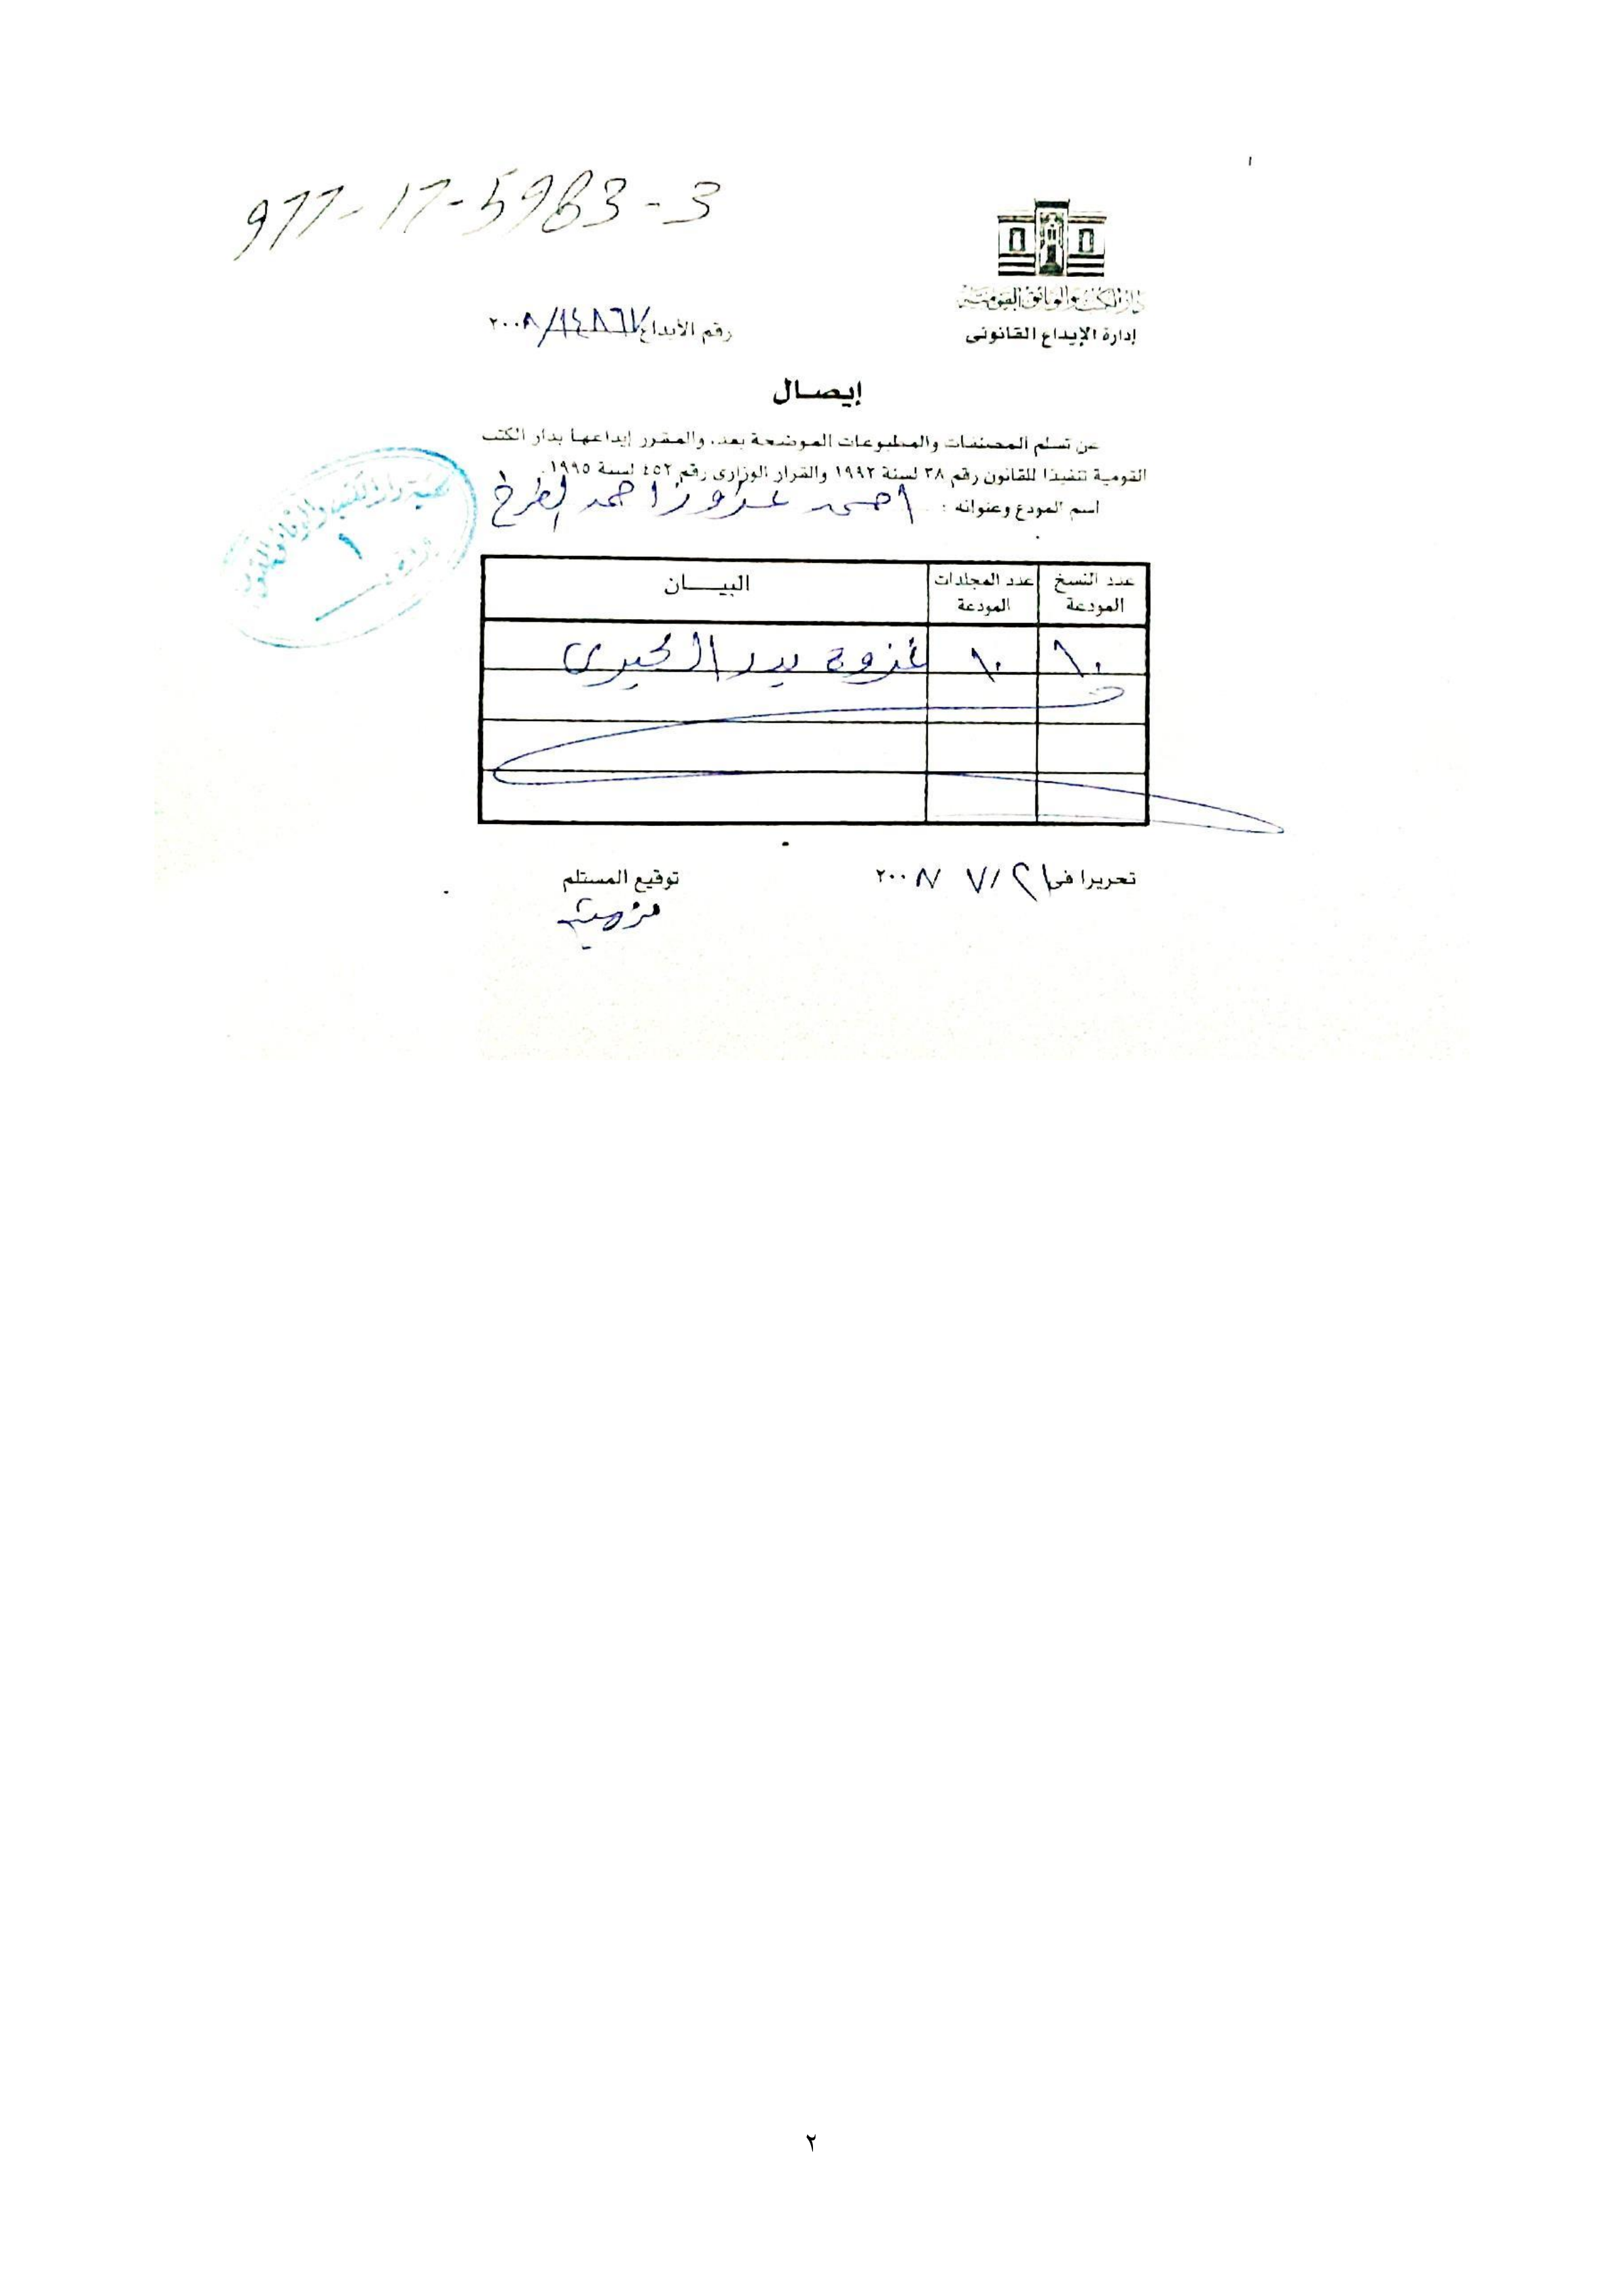 977-17-5963-3
دار الكتب والوثائق القومية
إدارة الإيداع القانونى
رقم الأيداع ١٤٨٦٧/ ٢٠٠٨
إيصال
عن تسلم المصنفات والمطبوعات الموضحة بعد، والمقرر إيداعها بدار الكتب
القومية تنفيذا للقانون رقم ٣٨ لسنة ١٩٩٢ والقرار الوزارى رقم ٤٥٢ لسنة ١٩٩٥.
اسم المودع وعنوانه : احمد احمد
عدد النسخ المودعة عدد المجلدات المودعة البيـــان
١٠ ١٠ غزوة بدر الكبرى
تحريرا فى ٢١/ ٧/ ٢٠٠٨
توقيع المستلم
٢